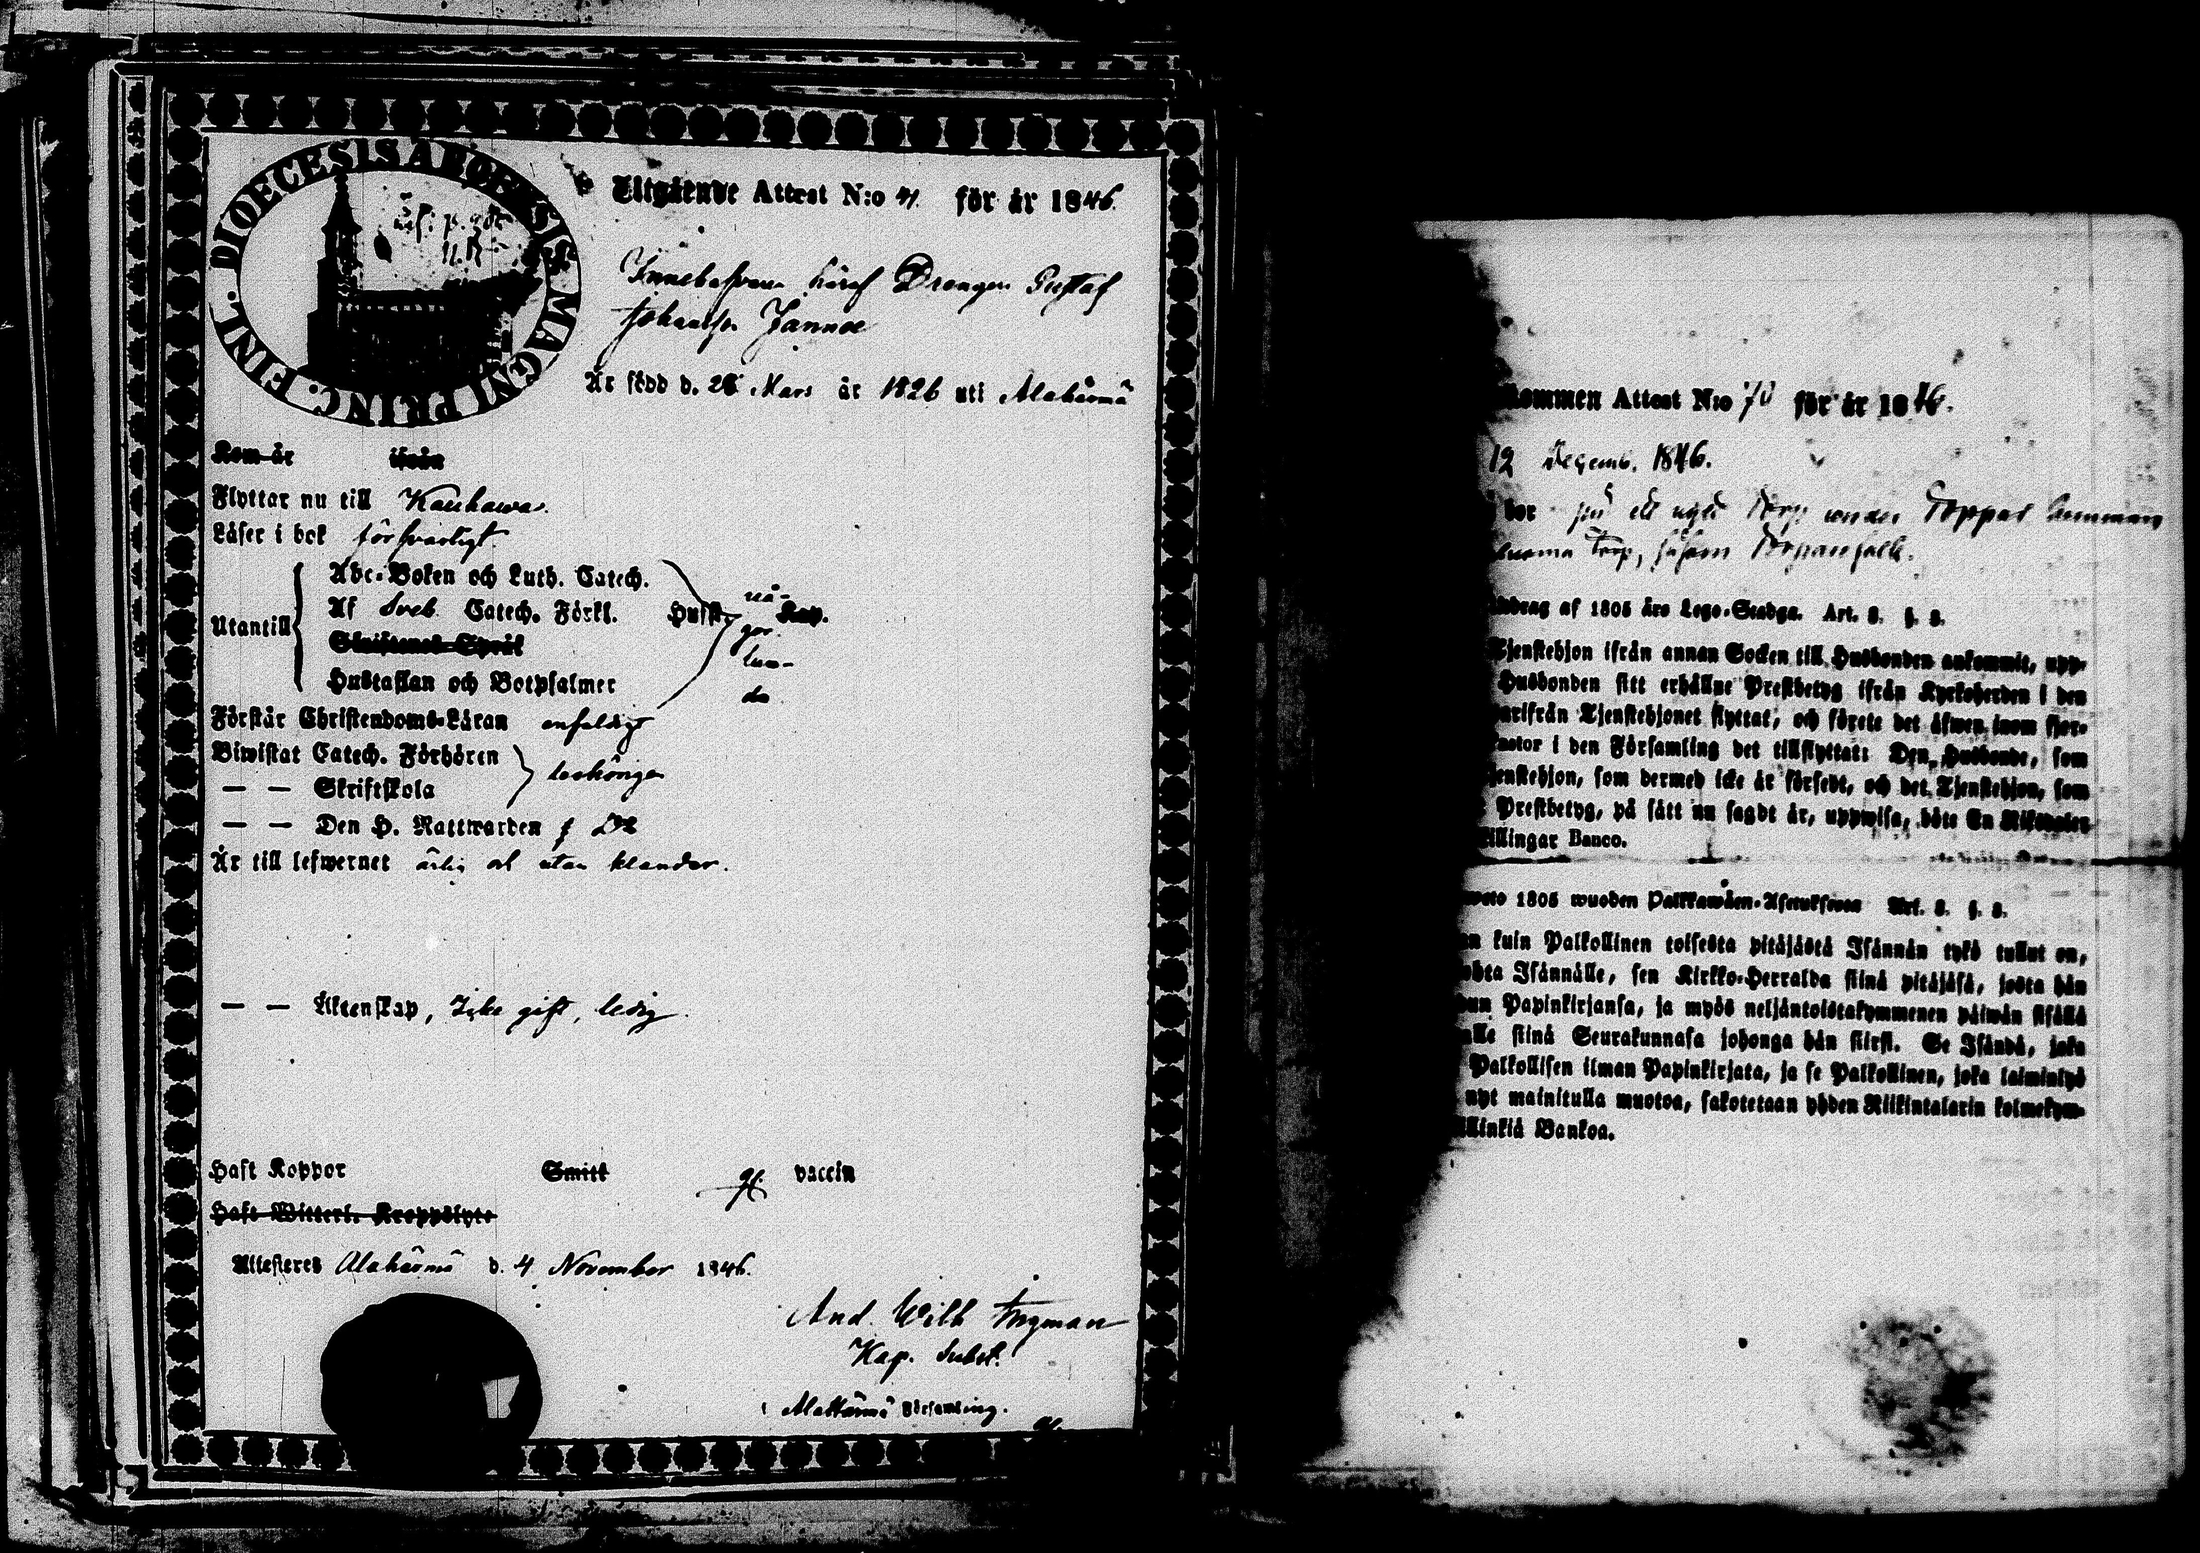 DIOECESIS ABOENSIS MAGNI PRINC. FINL.
Utgående Attest N:o 41. för år 1846.
Innehafvaren häraf Drängen Gustaf
Johansson
Är född d. 28 Mars år 1826 uti Alahärmä
Kom år ifrån
Flyttar nu till Kauhawa.
Läser i bok försvarligt
Abc-Boken och Luth. Catech.
Utantill Af Sveb. Catech. Förkl. Husst. Kap.
någorlunda
Skriftenes Språk
Hustaflan och Botpsalmer
Förstår Christendoms-Läran enfaldigt
Biwistat Catech. Förhören
behörigen
— — Skriftskola
— — Den H. Nattwarden
Är till lefwernet ärlig och utan klander.
— — Äktenskap, Icke gift, ledig.
Haft Koppor Smitt vaccin
Haft Witterl. Kroppslyte
Attesteres Alahärmä d. 4 November 1846.
And. Wilh Ingman
Kap. Subst.
i Alahärmä Församling.
kommen Attest N:o 70 för år 1846.
12 Decemb. 1846.
bor på ett nytt Torp under
Torp, såsom
utdrag af 1805 års Lego-Stadga. Art. 8. §. 8.
Tjenstehjon ifrån annan Socken till Husbonden ankommit, upp-
Husbonden sitt erhållne Prestbetyg ifrån Kyrkoherden i den
darifrån Tjenstehjonet flyttat, och förete det äfwen inom fjor-
i den Församling det tillflyttat: Den Husbonde, som
Tjenstehjon, som dermed icke är försedt, och det Tjenstehjon, som
Prestbetyg, på sätt nu sagdt är, uppwisa, böte En Riksdaler
Skillingar Banco.
1805 wuoden Palkkawäen-Asetuksesta Art. 8. §. 8.
kuin Palkollinen toisesta pitäjästä Isännän tykö tullut on,
Isännälle, sen Kirkko-Herralda siinä pitäjäsä, josta hän
Papinkirjansa, ja myös neljäntoistakymmenen päiwän sisällä
siinä Seurakunnasa johonga hän siirsi. Se Isändä, joka
Palkollisen ilman Papinkirjata, ja se Palkollinen, joka laiminlyö
nyt mainitulla muotoa, sakotetaan yhden Riikintalarin kolmekym-
Bankoa.